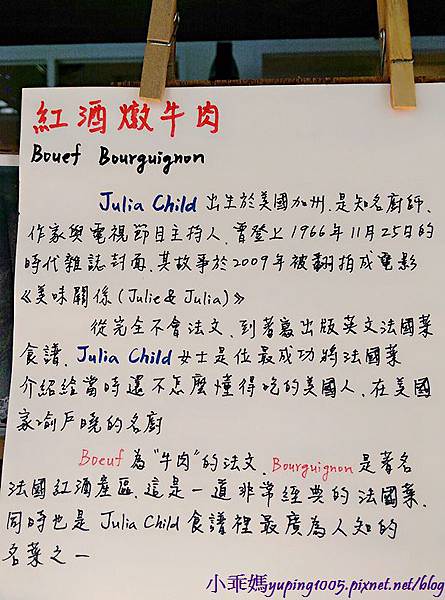 紅酒燉牛肉
Bouef Bourguignon
Julia Child 出生於美國加州.是知名廚師.
作家與電視節目主持人.曾登上1966年11月25日的
時代雜誌封面.其故事於2009年被翻拍成電影
《美味關係(Julie & Julia)》
從完全不會法文.到著寫出版英文法國菜
食譜.Julia Child女士是位最成功將法國菜
介紹給當時還不怎麼懂得吃的美國人.在美國
家喻戶曉的名廚
Boeuf 為"牛肉"的法文.Bourguignon 是著名
法國紅酒產區.這是一道非常經典的法國菜.
同時也是 Julia Child 食譜裡最廣為人知的
名菜之一
小乖媽yuping1005.pixnet.net/blog